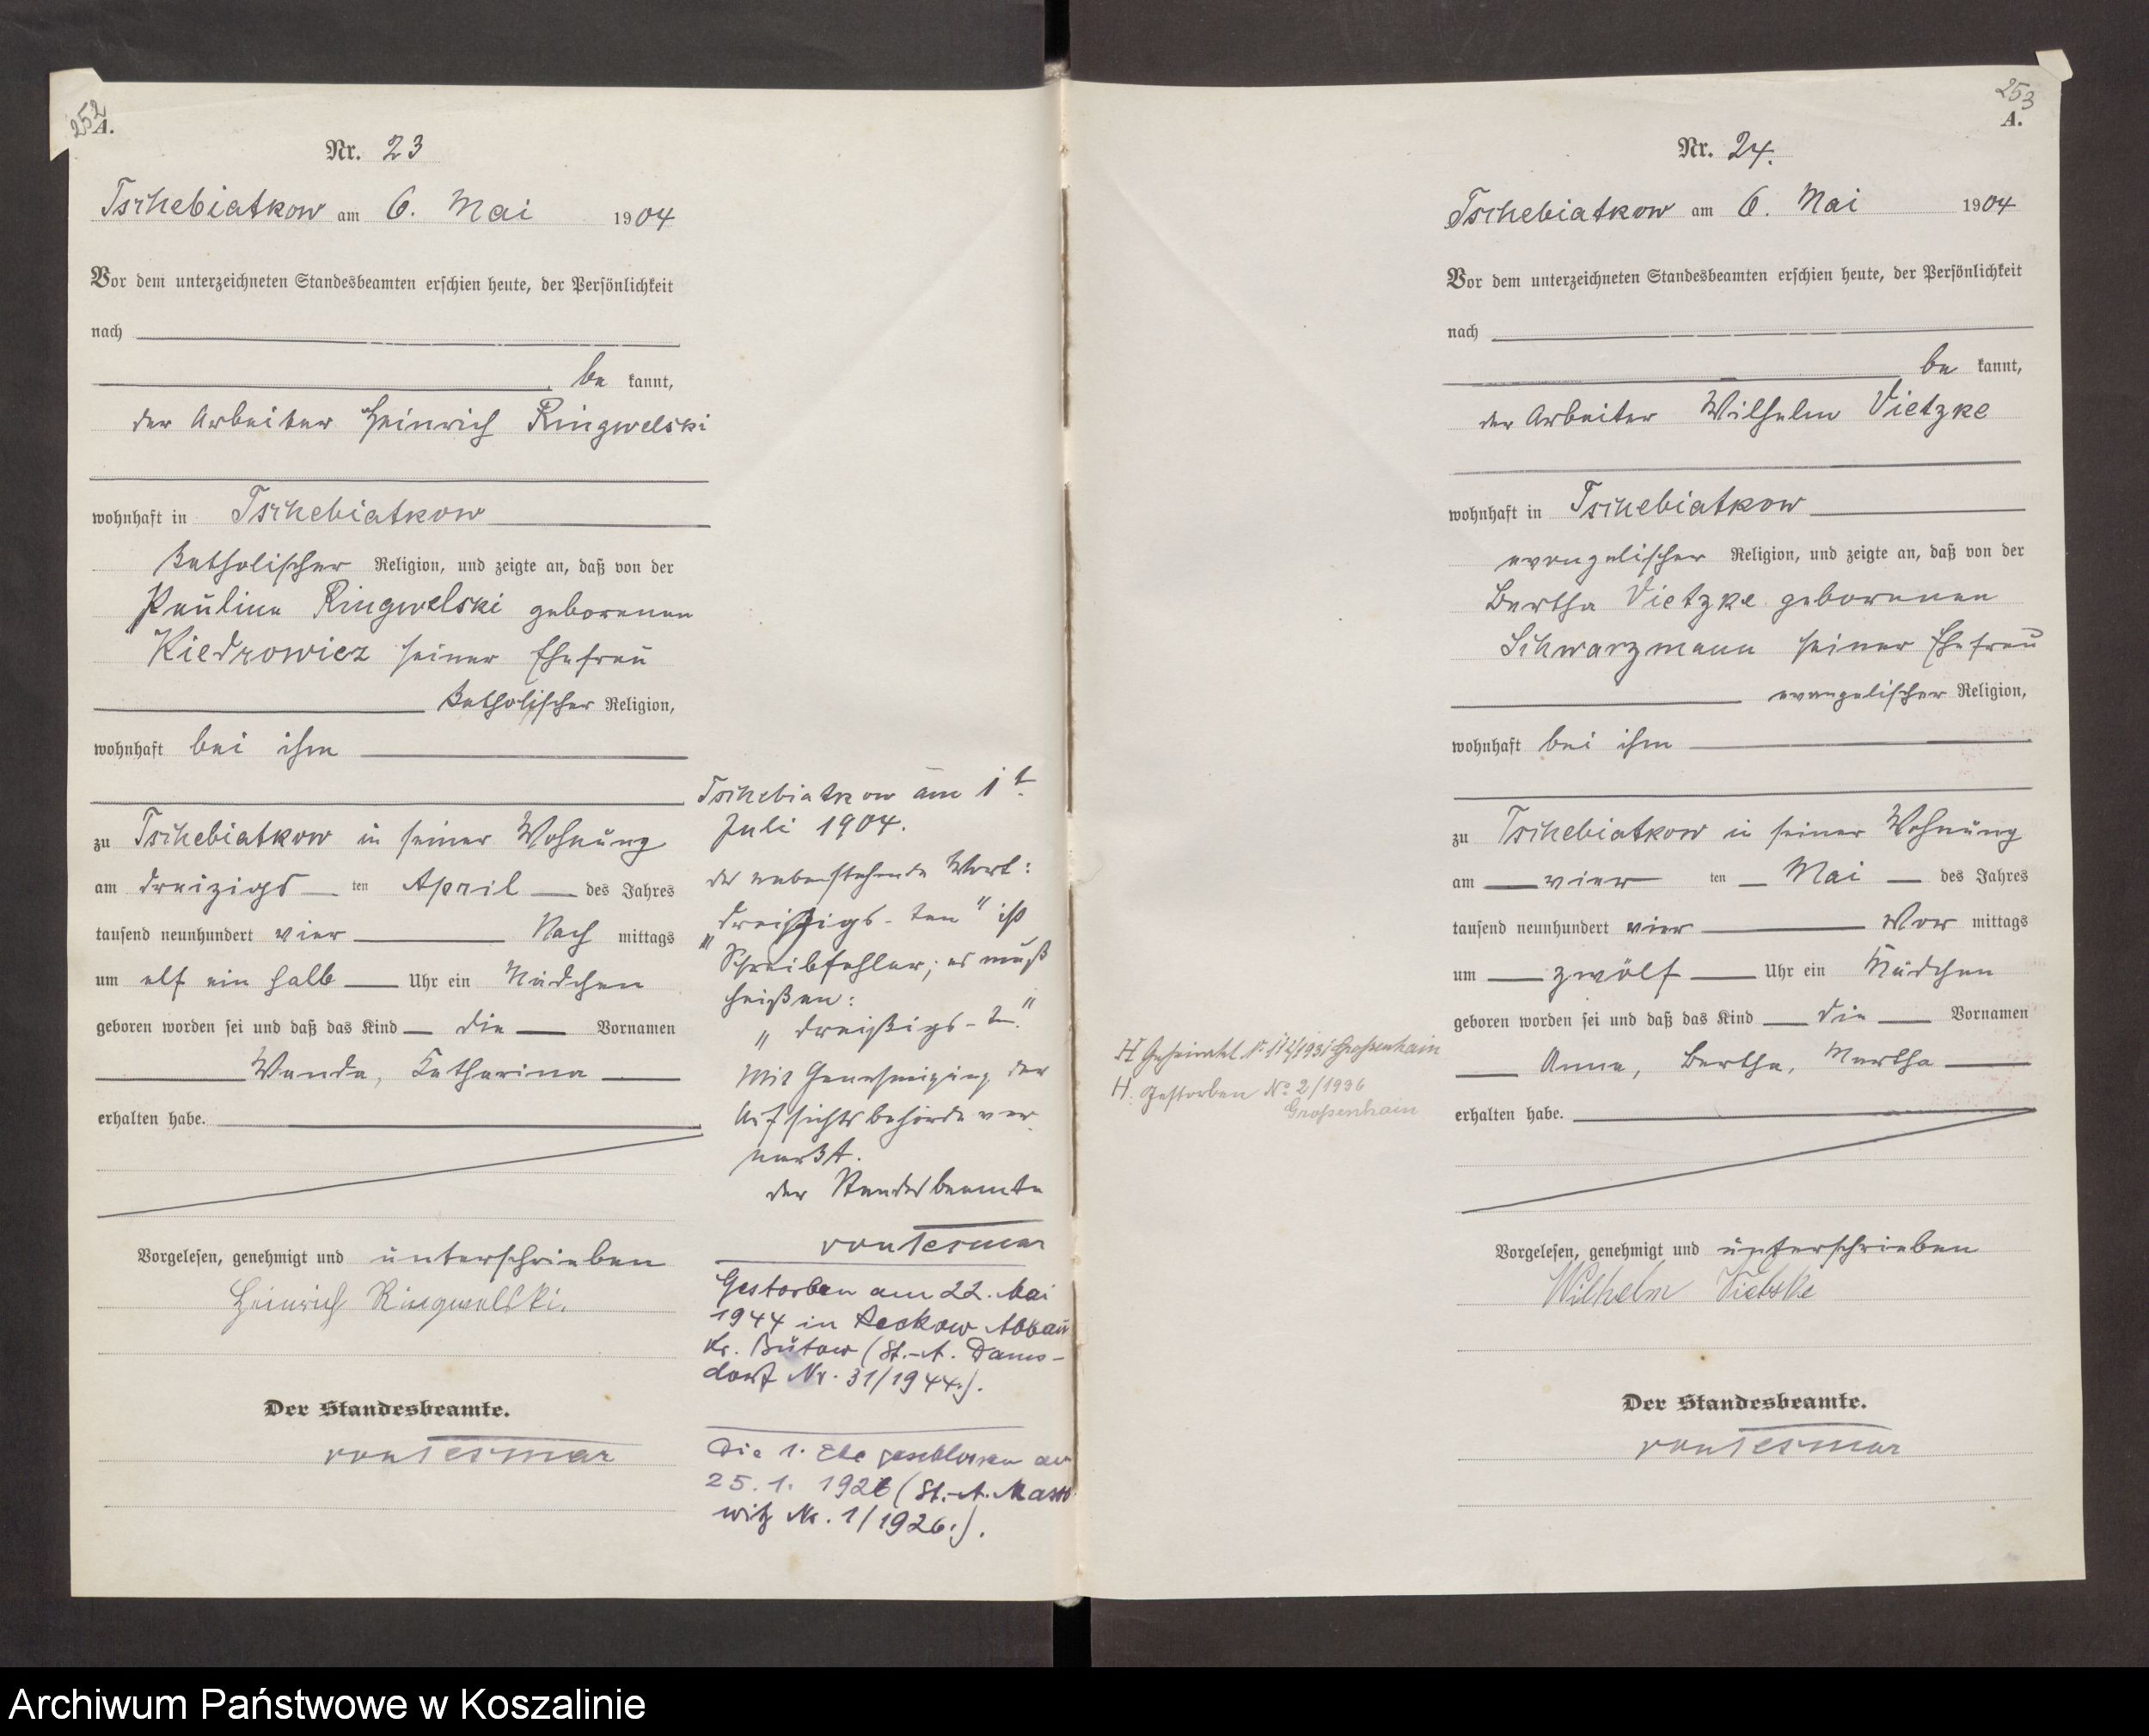 252
A.
Nr. 23
Tschebiatkow am 6. Mai 1904
Vor dem unterzeichneten Standesbeamten erschien heute, der Persönlichkeit
nach
be kannt,
der Arbeiter Heinrich Ringwelski
wohnhaft in Tschebiatkow
katholischer Religion, und zeigte an, daß von der
Pauline Ringwelski geborenen
Kiedrowicz seiner Ehefrau
katholischer Religion,
wohnhaft bei ihm
zu Tschebiatkow in seiner Wohnung
am dreizigs ten April des Jahres
tausend neunhundert vier Nach mittags
um elf ein halb Uhr ein Mädchen
geboren worden sei und daß das Kind die Vornamen
Wanda, Katharina
erhalten habe.
Vorgelesen, genehmigt und unterschrieben
Heinrich Ringwelski.
Der Standesbeamte.
von Tesmar
Tschebiatkow am 1t.
Juli 1904.
das nebenstehende Wort:
„dreizigs-ten" ist
Schreibfehler; es muß
heißen:
„dreißigs-t."
Mit Genehmigung der
Aufsichtsbehörde ver
merkt.
der Standesbeamte
von Tesmar
Gestorben am 22. Mai
1944 in Reckow Abbau
Kr. Bütow (St.-A. Dams-
dorf Nr. 31/1944.).
Die 1. Ehe geschlossen am
25. 1. 1926 (St.-A. Masso
witz Nr. 1/1926.).
253
A.
Nr. 24.
Tschebiatkow am 6. Mai 1904
Vor dem unterzeichneten Standesbeamten erschien heute, der Persönlichkeit
nach
be kannt,
der Arbeiter Wilhelm Vietzke
wohnhaft in Tschebiatkow
evangelischer Religion, und zeigte an, daß von der
Bertha Vietzke geborenen
Schwarzmann seiner Ehefrau
evangelischer Religion,
wohnhaft bei ihm
zu Tschebiatkow in seiner Wohnung
am vier ten Mai des Jahres
tausend neunhundert vier Vor mittags
um zwölf Uhr ein Mädchen
geboren worden sei und daß das Kind die Vornamen
Anna, Bertha, Martha
erhalten habe.
H Geheiratet Großenhain
H. Gestorben No 2/1936
Großenhain
Vorgelesen, genehmigt und unterschrieben
Wilhelm Vietzke
Der Standesbeamte.
von Tesmar
Archiwum Państwowe w Koszalinie